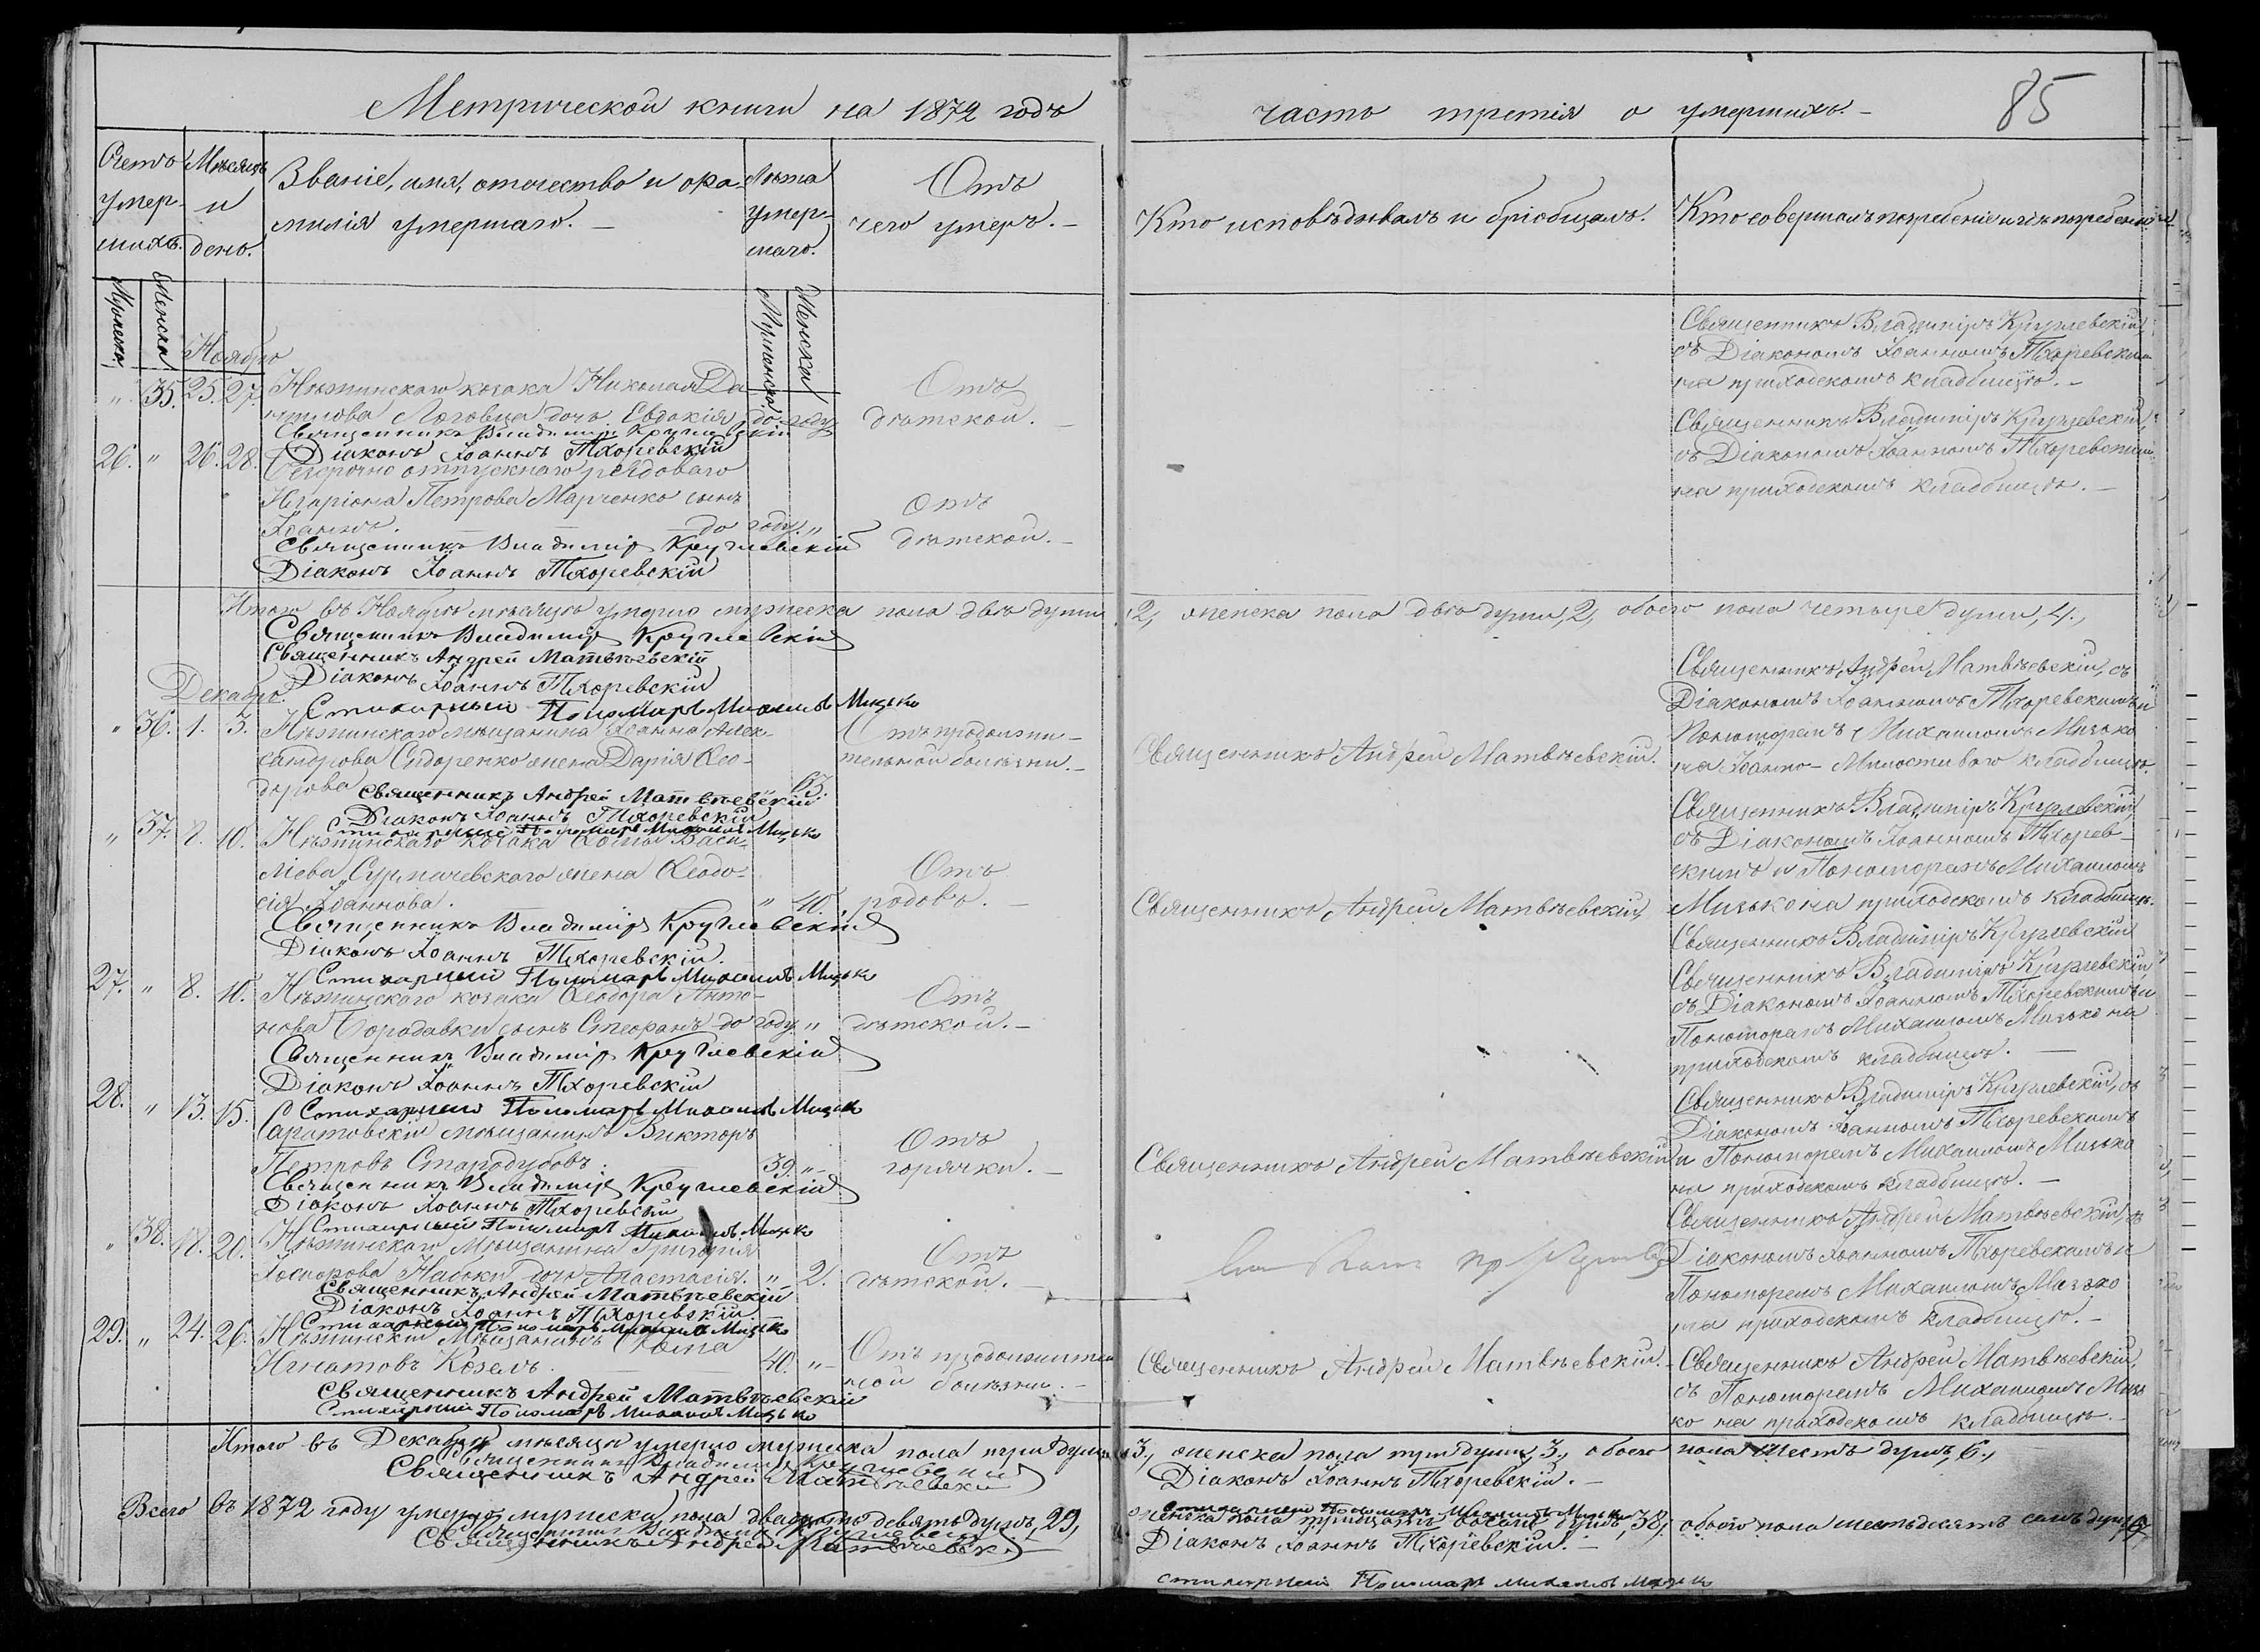 Метрической книги на 1872 годъ
часть третія о умершихъ.
85
Счетъ умер-шихъ.
Мѣсяцъ и день.
Званіе, имя, отчество и фа-
милія умершаго.
Лѣта умер-шаго.
Отъ
чего умеръ.
Кто исповѣдывалъ и пріобщалъ.
Кто совершалъ погребеніе и гдѣ погребенъ
Мужеска
Женска
Мужеска
Женска
Ноябрь
" 35. 25. 27. Нѣжинскаго козака Николая Да-
нилова Логовца дочь Евдокія до году
Отъ
дѣтской.
Священникъ Владиміръ Кручевскій
съ Діакономъ Іоанномъ Тхоревскимъ
на приходскомъ кладбищѣ.
Священникъ Владиміръ Кручевскій
Діаконъ Іоаннъ Тхоревскій
26. " 26. 28. Безсрочно отпускнаго рядоваго
Иларіона Петрова Марченко сынъ
Іоаннъ. до году "
Отъ
дѣтской.
Священникъ Владиміръ Кручевскій,
съ Діакономъ Іоанномъ Тхоревскимъ
на приходскомъ кладбищѣ.
Священникъ Владиміръ Кручевскій
Діаконъ Іоаннъ Тхоревскій
Итого въ Ноябрѣ мѣсяцѣ умерло мужеска пола двѣ души 2, женска пола двѣ души, 2, обоего пола четыре души, 4.,
Священникъ Владиміръ Кручевскій
Священникъ Андрей Матвѣевскій
Діаконъ Іоаннъ Тхоревскій
Стихарный Пономарь Михаилъ Мизько
Декабрь.
" 36. 1. 3. Нѣжинскаго мѣщанина Іоанна Алек-
сандрова Сидоренко жена Дарія Ѳео-
дорова " 63.
Отъ продолжи-
тельной болѣзни.
Священникъ Андрей Матвѣевскій.
Священникъ Андрей Матвѣевскій, съ
Діакономъ Іоанномъ Тхоревскимъ и
Пономаремъ Михаиломъ Мизько
на Іоанно-Милостиваго кладбищѣ.
Священникъ Андрей Матвѣевскій
Діаконъ Іоаннъ Тхоревскій
Стихарный Пономарь Михаилъ Мизько
" 37. 8. 10. Нѣжинскаго козака Косьмы Васи-
ліева Сурмачевскаго жена Ѳеодо-
сія Іоаннова. " 40.
Отъ
родовъ.
Священникъ Андрей Матвѣевскій
Священникъ Владиміръ Кручевскій,
съ Діакономъ Іоанномъ Тхорев-
скимъ и Пономаремъ Михаиломъ
Мизько на приходскомъ кладбищѣ.
Священникъ Владиміръ Кручевскій
Священникъ Владиміръ Кручевскій
Діаконъ Іоаннъ Тхоревскій.
Стихарный Пономарь Михаилъ Мизько
27. " 8. 10. Нѣжинскаго козака Ѳеодора Анто-
нова Бородавки сынъ Стефанъ до году "
Отъ
дѣтской.
Священникъ Владиміръ Кручевскій,
съ Діакономъ Іоанномъ Тхоревскимъ и
Пономаремъ Михаиломъ Мизько на
приходскомъ кладбищѣ.
Священникъ Владиміръ Кручевскій
Діаконъ Іоаннъ Тхоревскій
Стихарный Пономарь Михаилъ Мизько
28. " 13. 15. Саратовскій мѣщанинъ Викторъ
Петровъ Стародубовъ. 39. "
Отъ
горячки.
Священникъ Андрей Матвѣевскій
Священникъ Владиміръ Кручевскій, съ
Діакономъ Іоанномъ Тхоревскимъ
и Пономаремъ Михаиломъ Мизько
на приходскомъ кладбищѣ.
Священникъ Владиміръ Кручевскій
Діаконъ Іоаннъ Тхоревскій
Стихарный Пономарь Михаилъ Мизько
" 38. 18. 20. Нѣжинскаго Мѣщанина Григорія
Набоки дочь Анастасія. " 2.
Отъ
дѣтской.
Священникъ Андрей Матвѣевскій, съ
Діакономъ Іоанномъ Тхоревскимъ и
Пономаремъ Михаиломъ Мизько
на приходскомъ кладбищѣ.
Священникъ Андрей Матвѣевскій
Діаконъ Іоаннъ Тхоревскій.
Стихарный Пономарь Михаилъ Мизько
29. " 24. 26. Нѣжинскій Мѣщанинъ Ѳома
Игнатовъ Козелъ. 40. "
Отъ продолжитель
ной болѣзни.
Священникъ Андрей Матвѣевскій.
Священникъ Андрей Матвѣевскій,
съ Пономаремъ Михаиломъ Мизь
ко на приходскомъ кладбищѣ.
Священникъ Андрей Матвѣевскій
Стихарный Пономарь Михаилъ Мизько
Итого въ Декабрѣ мѣсяцѣ умерло мужеска пола три души 3., женска пола три души, 3., обоего пола шесть душъ, 6.,
Священникъ Владиміръ Кручевскій
Священникъ Андрей Матвѣевскій
Діаконъ Іоаннъ Тхоревскій.
Стихарный Пономарь Михаилъ Мизько
Всего въ 1872 году умерло мужеска пола двадцать девять душъ, 29, женска пола тридцать восемь душъ, 38, обоего пола шестьдесятъ семь душъ, 67
Священникъ Владиміръ Кручевскій
Священникъ Андрей Матвѣевскій
Діаконъ Іоаннъ Тхоревскій.
Стихарный Пономарь Михаилъ Мизько